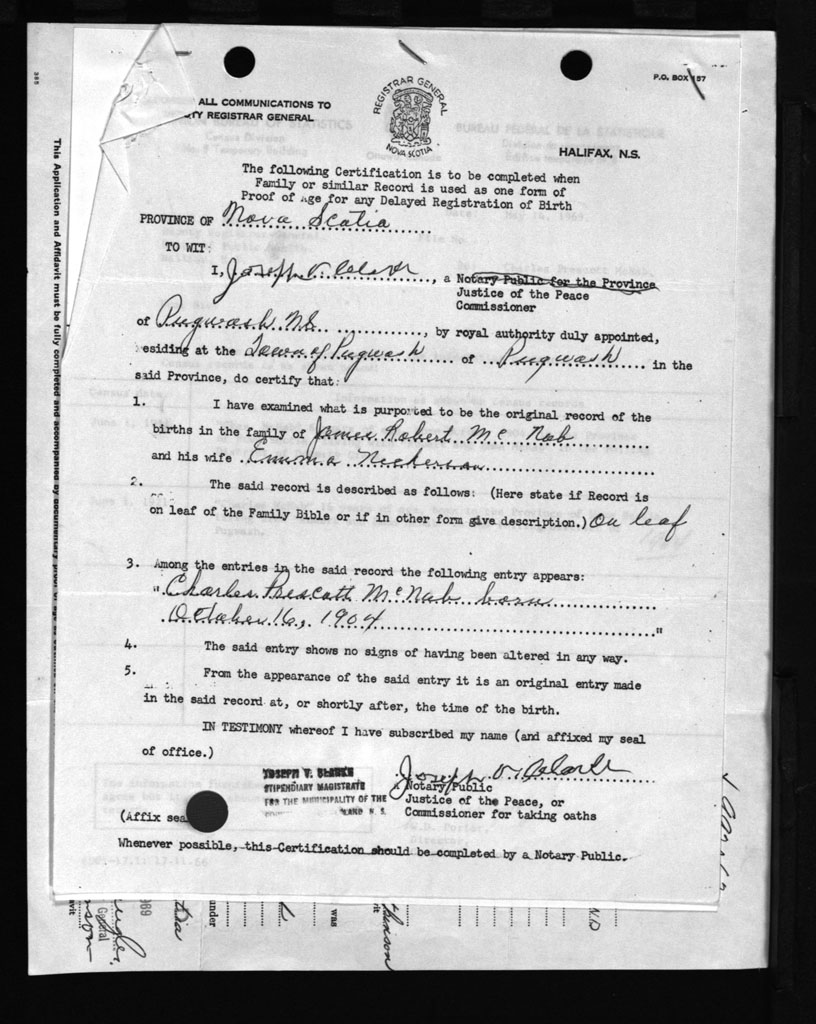 P.O. BOX 157
ALL COMMUNICATIONS TO
TY REGISTRAR GENERAL
REGISTRAR GENERAL
NOVA SCOTIA
HALIFAX, N.S.
The following Certification is to be completed when
Family or similar Record is used as one form of
Proof of Age for any Delayed Registration of Birth
PROVINCE OF Nova Scotia
TO WIT:
I, Joseph V. Clark, a Notary Public for the Province
Justice of the Peace
Commissioner
of Pugwash N.S., by royal authority duly appointed,
residing at the Town of Pugwash of Pugwash in the
said Province, do certify that:
1. I have examined what is purported to be the original record of the
births in the family of James Robert Mc Nab
and his wife Emma Nickerson
2. The said record is described as follows: (Here state if Record is
on leaf of the Family Bible or if in other form give description.) On leaf
3. Among the entries in the said record the following entry appears:
"Charles Prescott McNab born
October 16, 1904"
4. The said entry shows no signs of having been altered in any way.
5. From the appearance of the said entry it is an original entry made
in the said record at, or shortly after, the time of the birth.
IN TESTIMONY whereof I have subscribed my name (and affixed my seal
of office.)
JOSEPH V. CLARKE
STIPENDIARY MAGISTRATE
FOR THE MUNICIPALITY OF THE
LAND N. S.
Joseph V. Clark
a Notary Public
Justice of the Peace, or
Commissioner for taking oaths
(Affix sea
Whenever possible, this Certification should be completed by a Notary Public.
This Application and Affidavit must be fully completed and accompanied by documentary proof of age
385
969
under
was
N.D